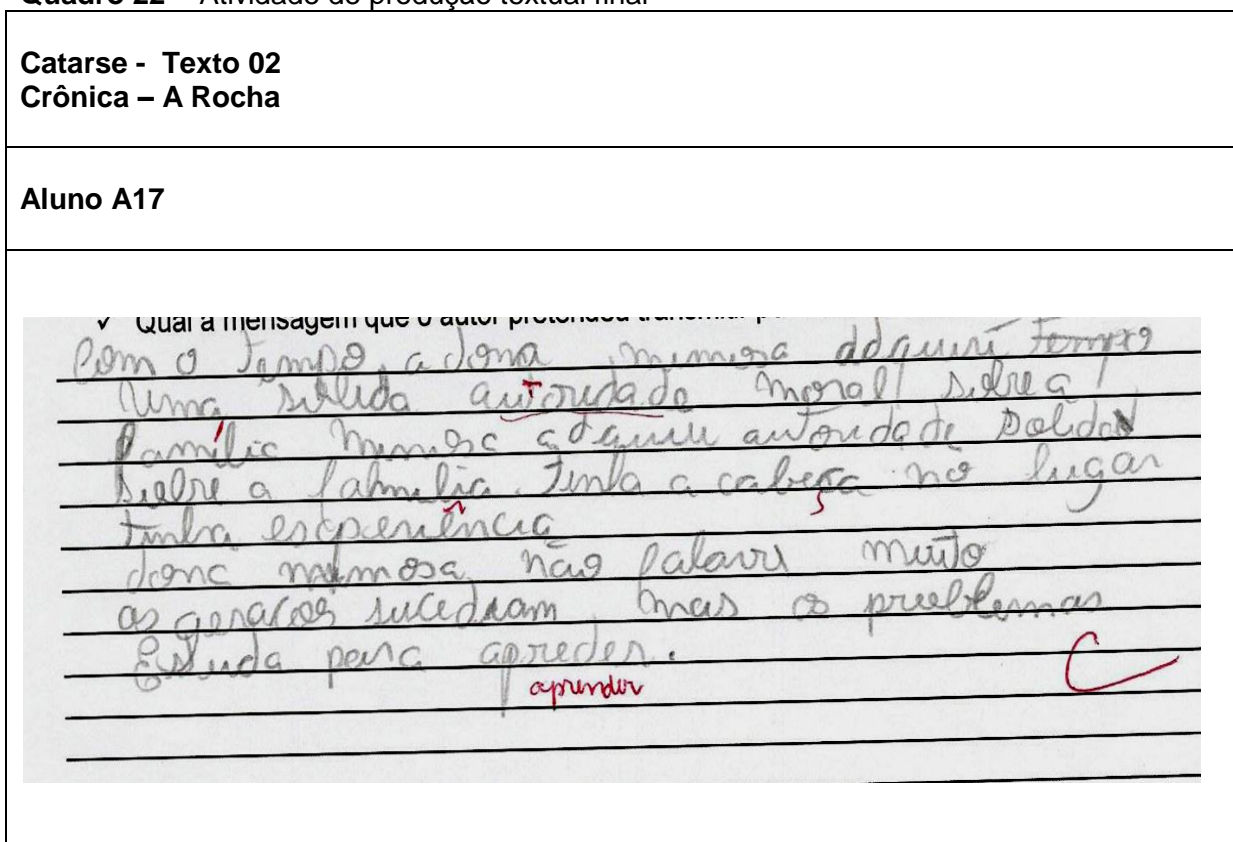 Quadro 22 – Atividade de produção textual final
Catarse - Texto 02
Crônica – A Rocha
Aluno A17
✓ Qual a mensagem que o autor pretendeu transmitir
Com o tempo, a dona mimosa adquiri tempo
Uma solida autoridade moral sobre a
família mimosa adquiri autoridade solida
sobre a fahmilia. Tinha a cabeça no lugar
tinha esperiência
dona mimosa não falava muito
as geracoes sucediam mas os problemas
Estuda para apreder.
aprender
C